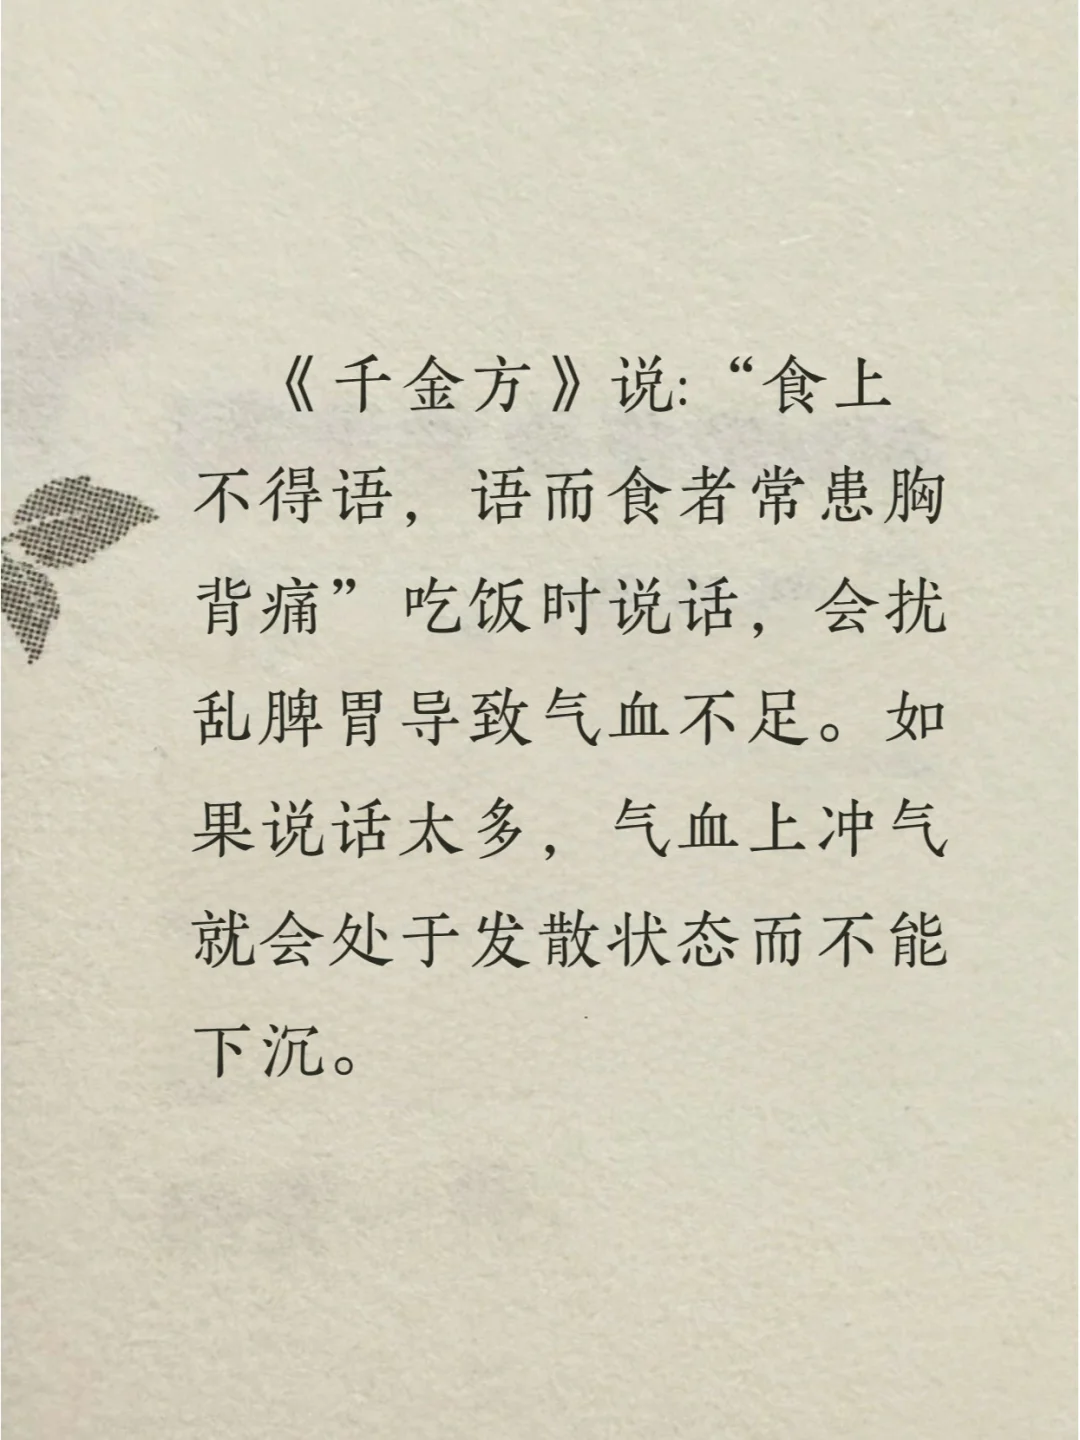 《千金方》说:“食上
不得语，语而食者常患胸
背痛”吃饭时说话，会扰
乱脾胃导致气血不足。如
果说话太多，气血上冲气
就会处于发散状态而不能
下沉。